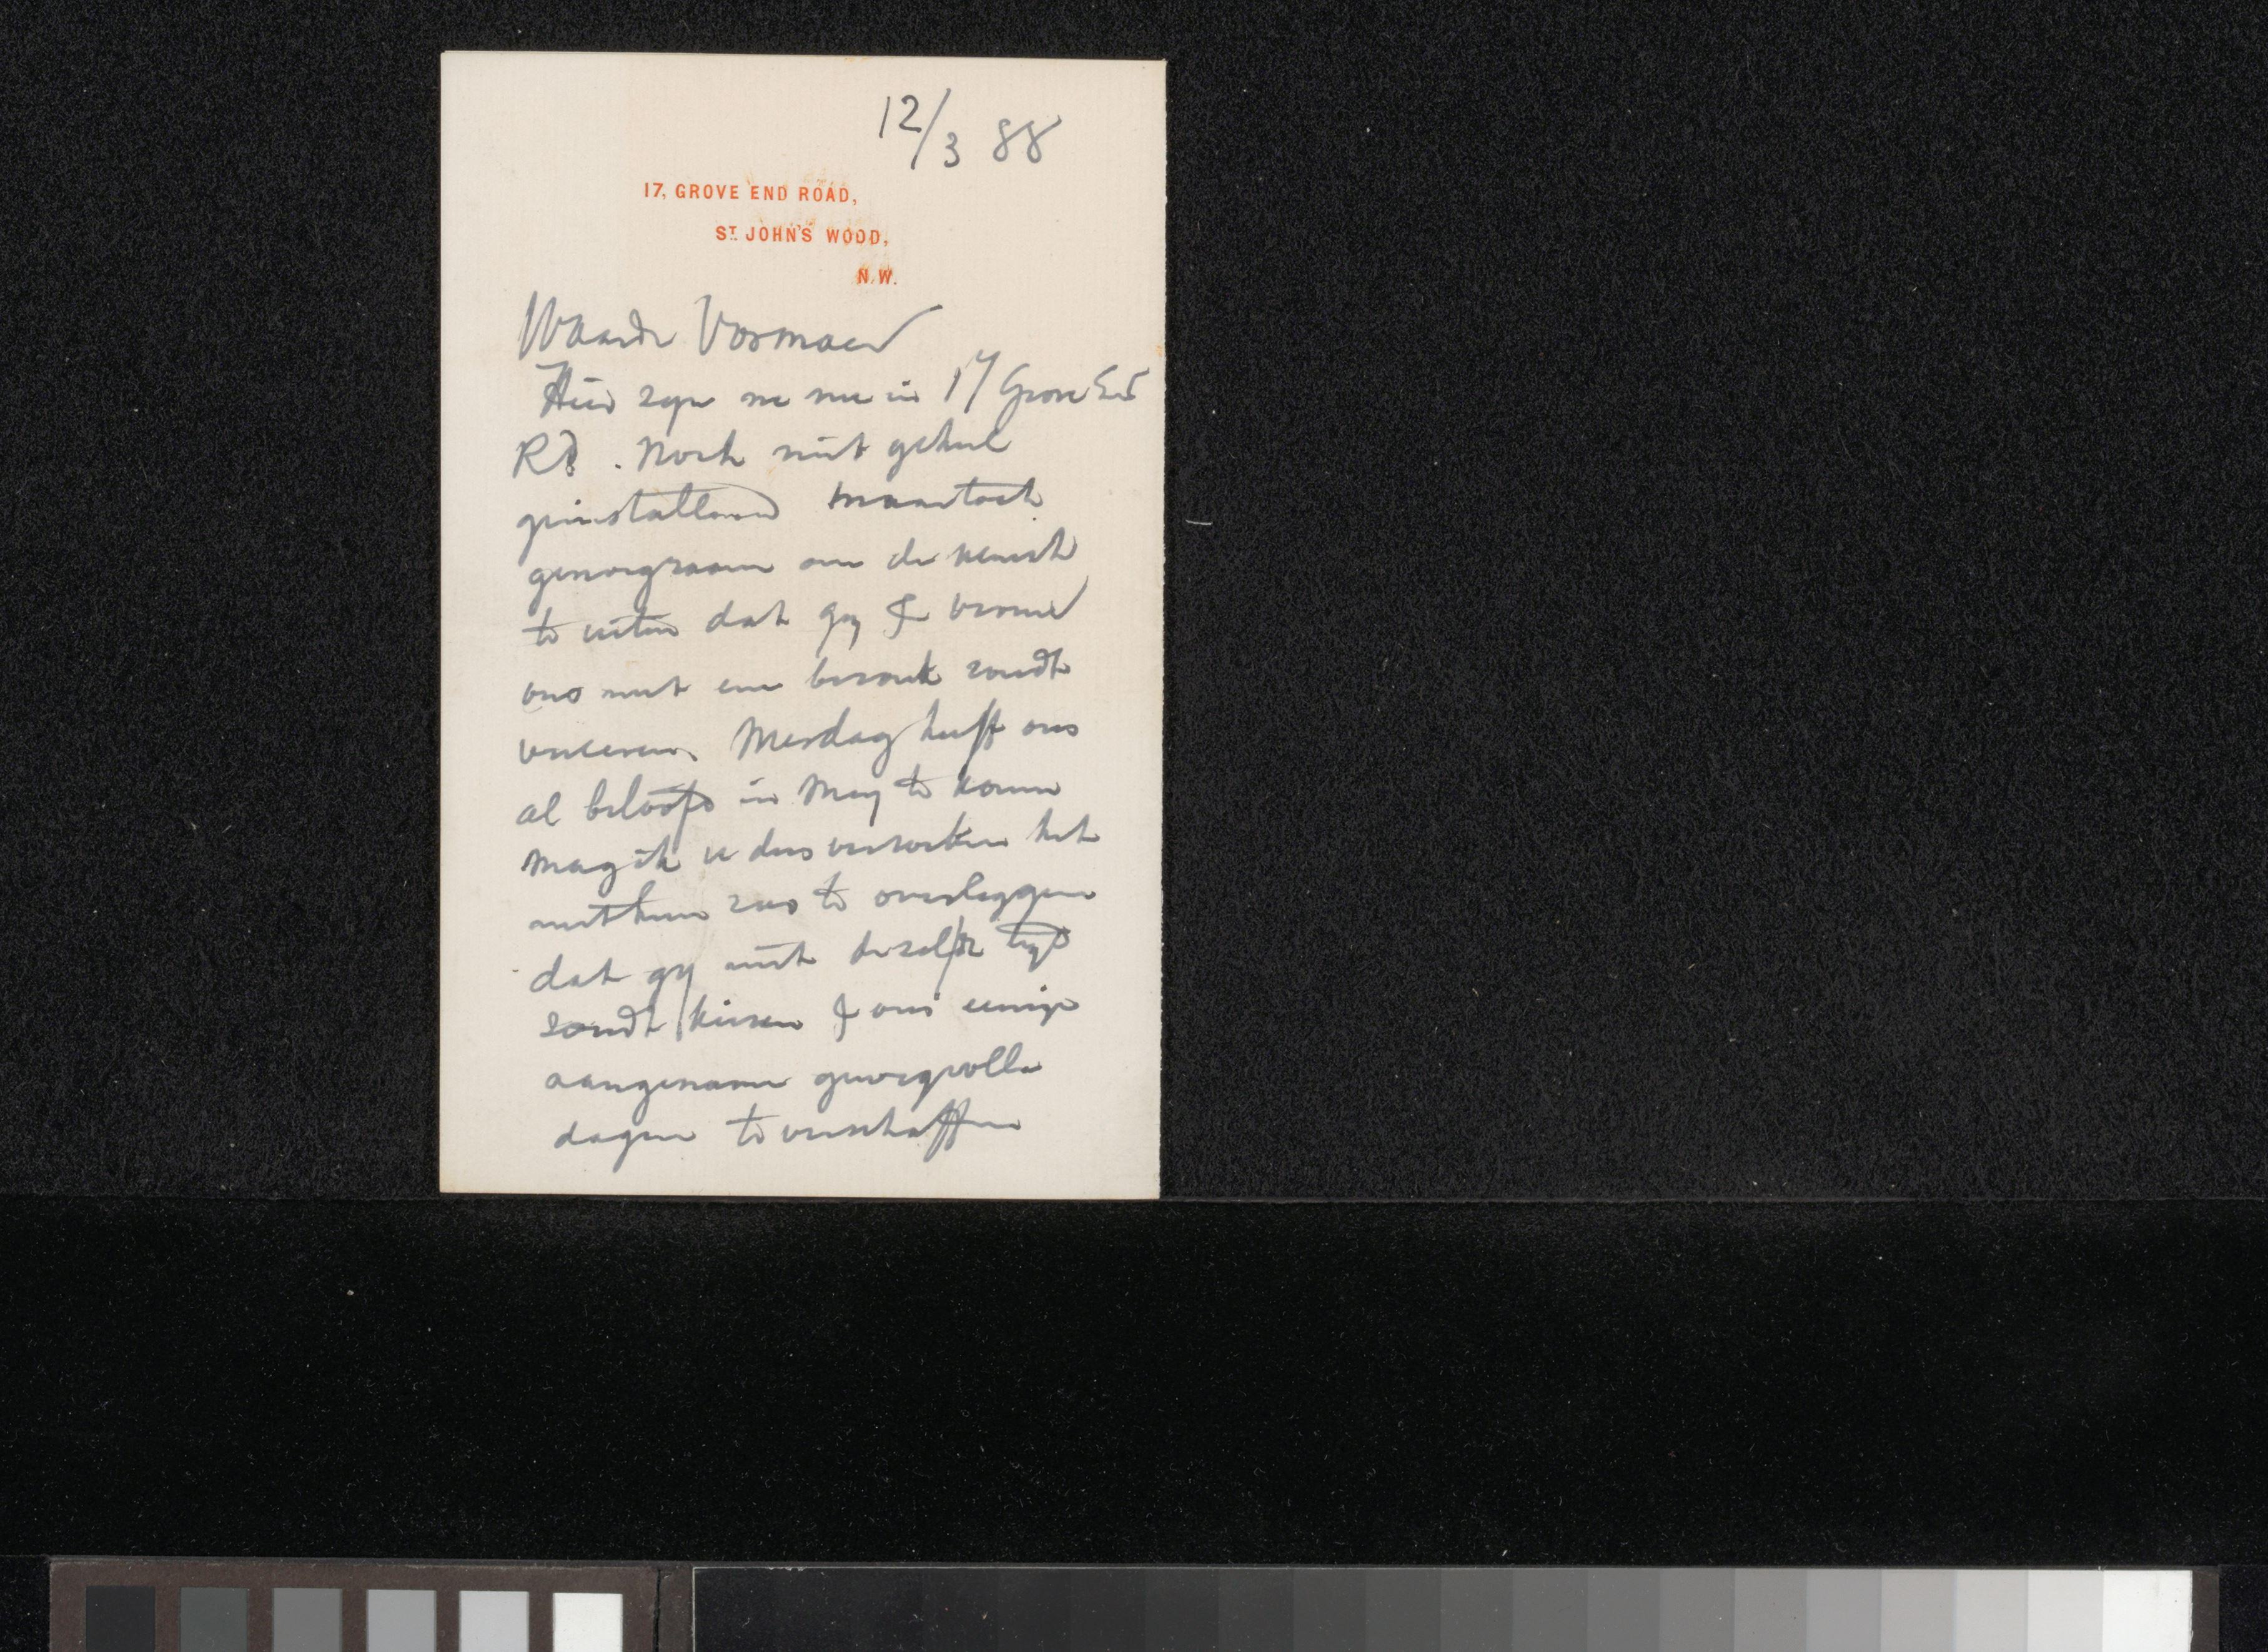 12/3 88
17, GROVE END ROAD,
ST. JOHN'S WOOD,
N.W.
Waarde Vosmaer
Hier zyn we nu in 17 Grove End
Rd. Noch niet geheel
geinstalleerd maar toch
genoegzaam om de wensch
te uiten dat gy & vrouw
ons met een bezoek zoudt
vereeren. Mesdag heeft ons
al beloofd in Mey te komen
mag ik u dus verzoeken het
met hem zoo te overleggen
dat gy met dezelfde tyd
zoudt kiezen & ons eenige
aangename genoegvolle
dagen te verschaffen